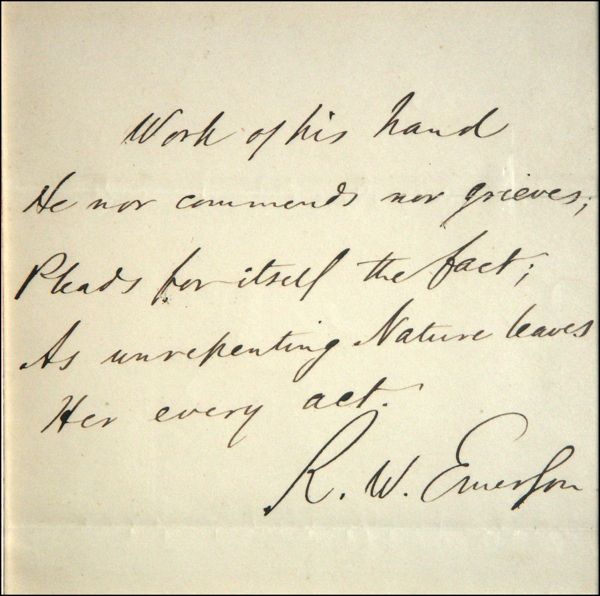 Work of his hand
He nor commends nor grieves;
Pleads for itself the fact;
As unrepenting Nature leaves
Her every act.
R. W. Emerson